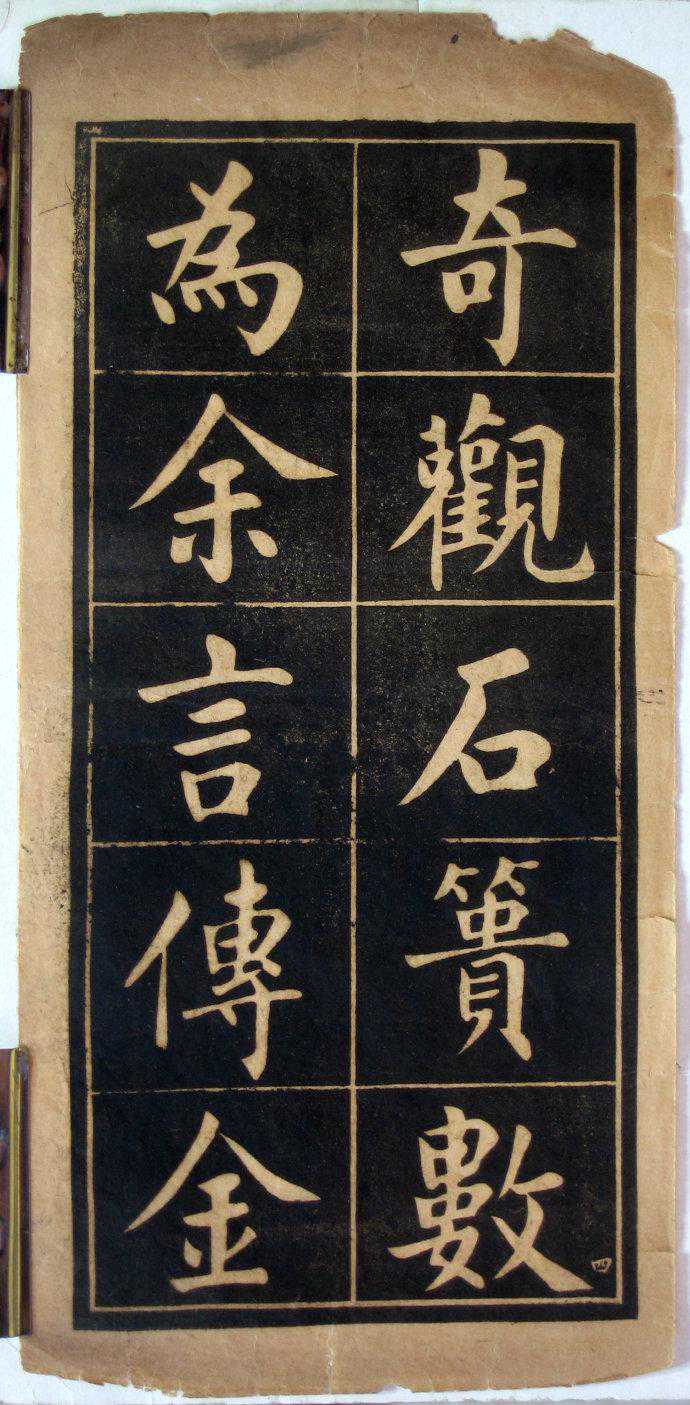 奇觀石簣數
為余言傳金
四